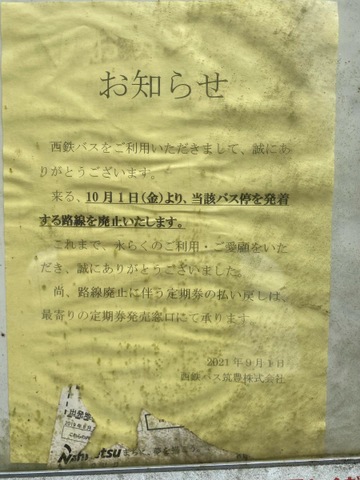 お知らせ
西鉄バスをご利用いただきまして、誠にあ
りがとうございます。
来る、10月1日(金)より、当該バス停を発着
する路線を廃止いたします。
これまで、永らくのご利用・ご愛顧をいた
だき、誠にありがとうございました。
尚、路線廃止に伴う定期券の払い戻しは、
最寄りの定期券発売窓口にて承ります
2021年9月1日
西鉄バス筑豊株式会社